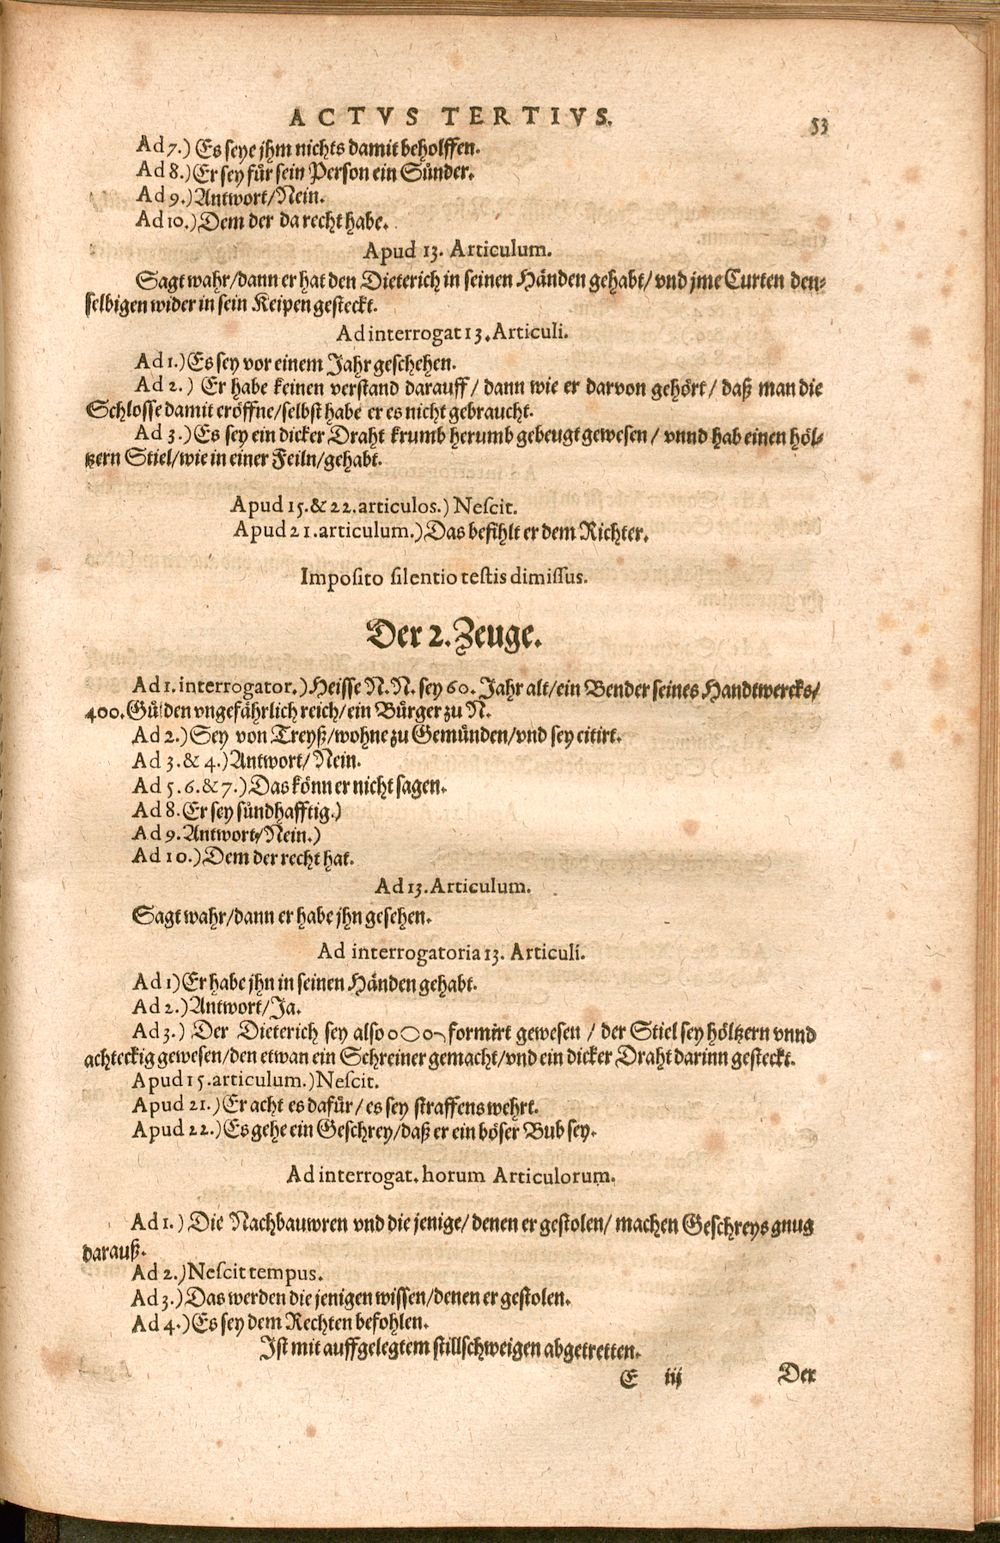 ACTVS TERTIVS. 53
Ad 7.) Es seye jhm nichts damit beholffen.
Ad 8.) Er sey für sein Person ein Sünder.
Ad 9.) Antwort/Nein.
Ad 10.) Dem der da recht habe.
Apud 13. Articulum.
Sagt wahr/dann er hat den Dieterich in seinen Händen gehabt/ vnd jme Curten den-
selbigen wider in sein Keipen gesteckt.
Ad interrogat 13. Articuli.
Ad 1.) Es sey vor einem Jahr geschehen.
Ad 2.) Er habe keinen verstand darauff/ dann wie er darvon gehört/ daß man die
Schlosse damit eröffne/selbst habe er es nicht gebraucht.
Ad 3.) Es sey ein dicker Draht krumb herumb gebeugt gewesen/ vnnd hab einen höl-
tzern Stiel/wie in einer Feiln/gehabt.
Apud 15. & 22. articulos.) Nescit.
Apud 21. articulum.) Das befihlt er dem Richter.
Imposito silentio testis dimissus.
Der 2. Zeuge.
Ad 1. interrogator.) Heisse N. N. sey 60. Jahr alt/ein Bender seines Handtwercks/
400. Gülden vngefährlich reich/ein Bürger zu N.
Ad 2.) Sey von Treyß/wohne zu Gemünden/vnd sey citirt.
Ad 3. & 4.) Antwort/Nein.
Ad 5. 6. & 7.) Das könn er nicht sagen.
Ad 8. Er sey sündhafftig.)
Ad 9. Antwort/Nein.)
Ad 10.) Dem der recht hat.
Ad 13. Articulum.
Sagt wahr/dann er habe jhn gesehen.
Ad interrogatoria 13. Articuli.
Ad 1) Er habe jhn in seinen Händen gehabt.
Ad 2.) Antwort/Ja.
Ad 3.) Der Dieterich sey also formirt gewesen / der Stiel sey höltzern vnnd
achteckig gewesen/den etwan ein Schreiner gemacht/vnd ein dicker Draht darinn gesteckt.
Apud 15. articulum.) Nescit.
Apud 21.) Er acht es dafür/ es sey straffens wehrt.
Apud 22.) Es gehe ein Geschrey/daß er ein böser Bub sey.
Ad interrogat. horum Articulorum.
Ad 1.) Die Nachbauwren vnd die jenige/ denen er gestolen/ machen Geschreys gnug
darauß.
Ad 2.) Nescit tempus.
Ad 3.) Das werden die jenigen wissen/denen er gestolen.
Ad 4.) Es sey dem Rechten befohlen.
Ist mit auffgelegtem stillschweigen abgetretten.
E iij Der